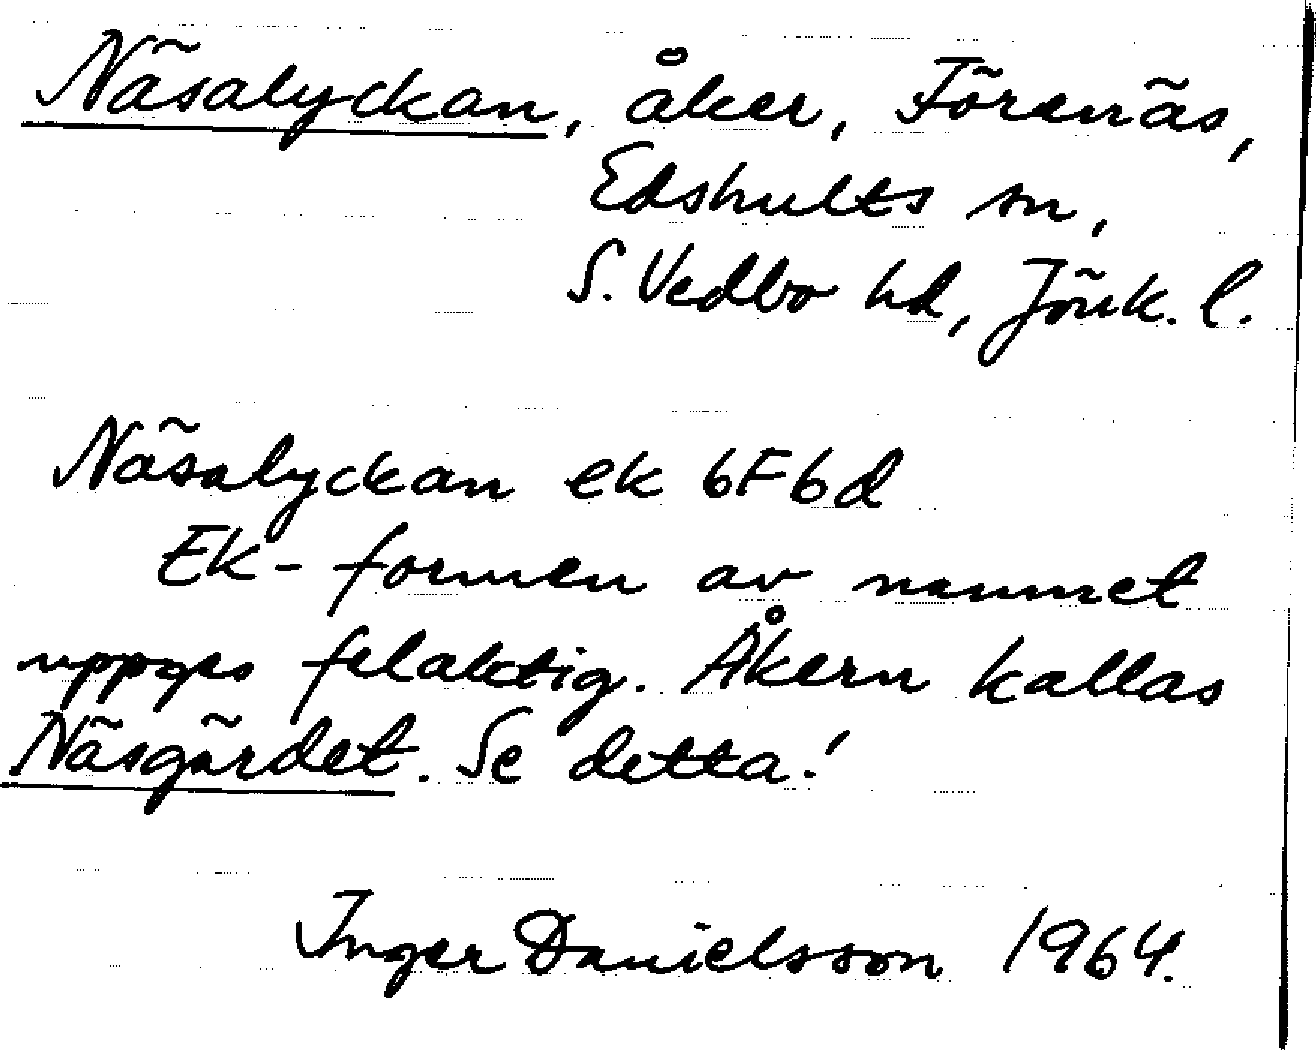 Näsalyckan, åker, Förenäs,
Edshults sn,
S. Vedbo hd, Jönk. l.
Näsalyckan ek 6F6d
Ek-formen av namnet
uppges felaktig. Åkern kallas
Näsgärdet. Se detta!
Inger Danielsson 1964.